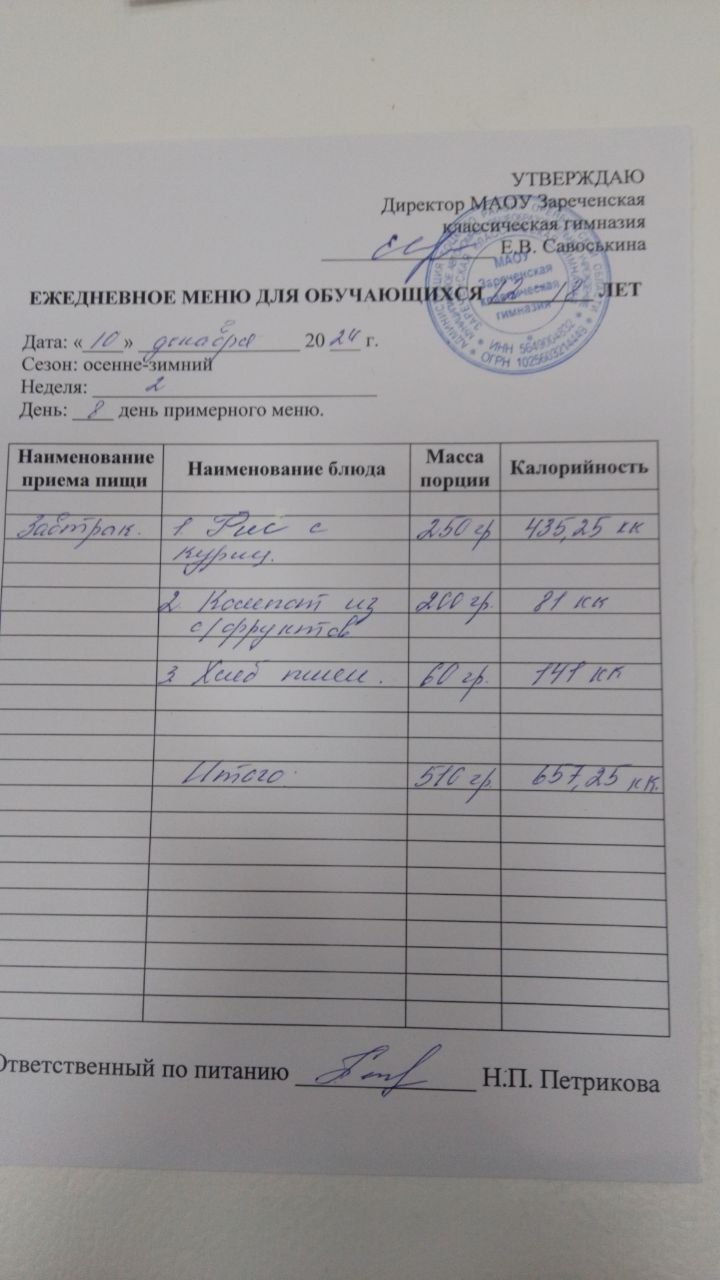 УТВЕРЖДАЮ
Директор МАОУ Зареченская
классическая гимназия
Е.В. Савоськина
МАОУ
Зареченская
классическая
гимназия
ИНН 5649004832 * ОГРН 1025603214449
ЕЖЕДНЕВНОЕ МЕНЮ ДЛЯ ОБУЧАЮЩИХСЯ 12 18 ЛЕТ
Дата: «10» декабря 2024 г.
Сезон: осенне-зимний
Неделя: 2
День: 8 день примерного меню.
Наименование приема пищи Наименование блюда Масса порции Калорийность
Завтрак. 1 Рис с 250 гр 435,25 кк
куриц.
2 Компот из 200 гр. 81 кк
с/фруктов
3 Хлеб пшен. 60 гр. 141 кк
Итого: 510 гр. 657,25 кк.
Ответственный по питанию Н.П. Петрикова